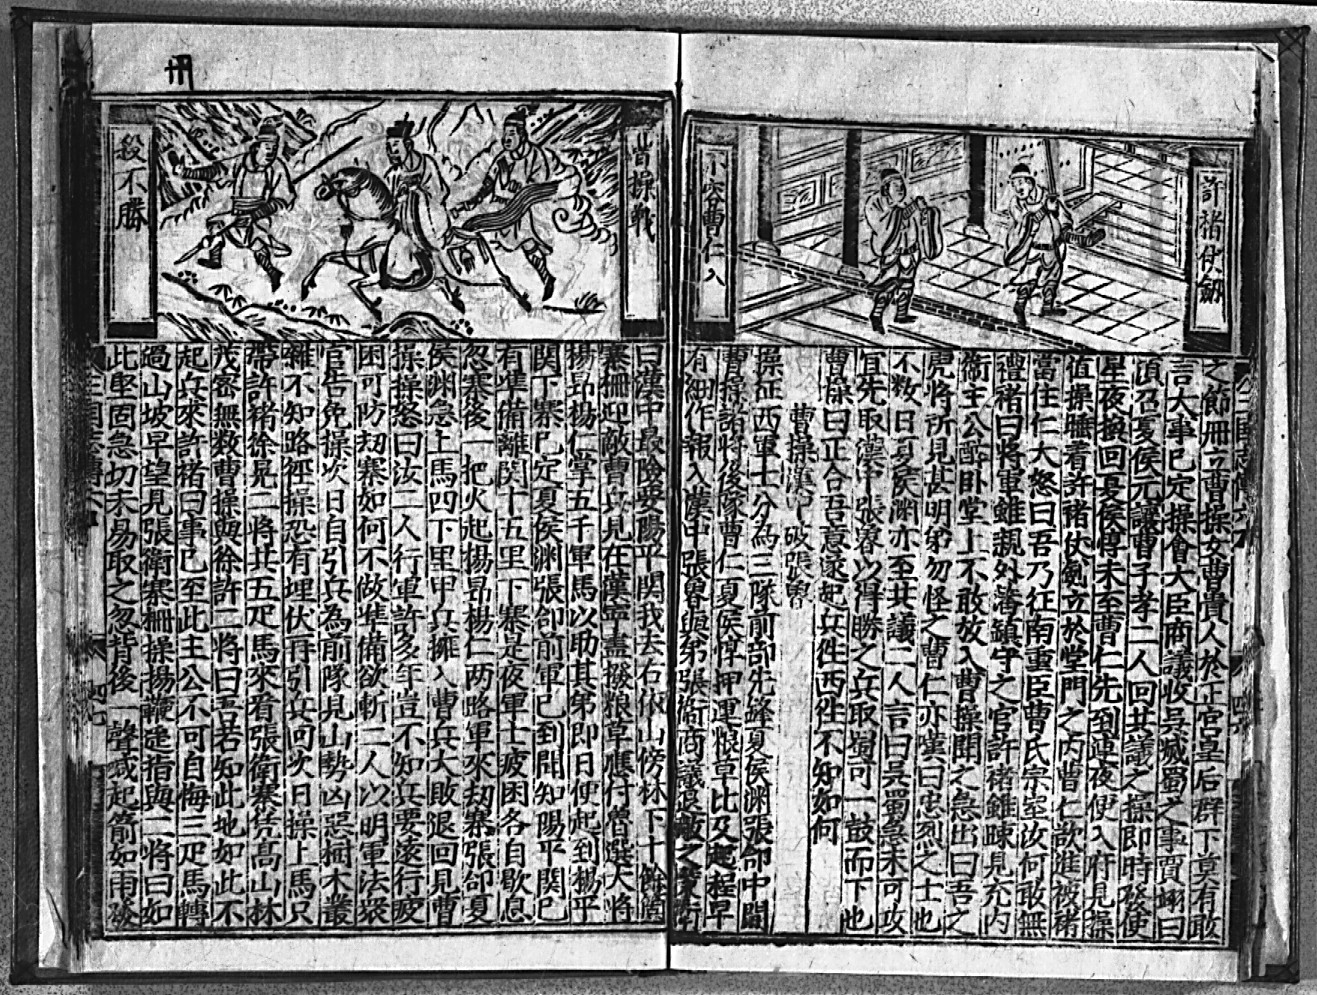 許褚仗劍
不容曹仁入
之節冊立曹操女曹貴人於正宮皇后群下莫有敢
言大事已定操會大臣商議收吳滅蜀之事賈詡曰
須召夏侯元讓曹子孝二人回共議之操即時發使
星夜換回夏侯惇未至曹仁先到連夜便入府見操
值操醉着許褚仗劍立於堂門之內曹仁欲進被褚
當住仁大怒曰吾乃征南重臣曹氏宗室汝何敢無
禮褚曰將軍雖親外藩鎮守之官許褚雖疎見充內
衛主公醉卧堂上不敢放入曹操聞之急出曰吾之
虎將所見甚明弟勿怪之曹仁亦嘆曰忠烈之士也
不数日夏侯惇亦至共議二人言曰吳蜀急未可攻
宜先取漢中張魯以得勝之兵取蜀可一鼓而下也
曹操曰正合吾意遂起兵徃西徃不知如何
曹操漢中破張魯
操征西軍士分為三隊前部先鋒夏侯渊張郃中間
曹操諸將後隊曹仁夏侯惇押運粮草比及起程早
有細作報入漢中張魯與弟張衛商議退敵之策衛
曹操戰
殺不勝
曰漢中最險要陽平関我去右依山傍林下十餘箇
寨柵迎敵曹兵兄在漢寧盡撥粮草應付魯選大將
楊昂楊仁掌五千軍馬以助其弟即日便起到楊平
関下寨已定夏侯渊張郃前軍已到聞知陽平関已
有準備離関十五里下寨是夜軍士疲困各自歇息
忽寨後一把火起楊昂楊仁两路軍來劫寨張郃夏
侯渊急上馬四下里甲兵擁入曹兵大敗退回見曹
操操怒曰汝二人行軍許多年豈不知兵要遠行疲
困可防劫寨如何不做準備欲斬二人以明軍法衆
官告免操次日自引兵為前隊見山勢凶惡樹木叢
雜不知路徑操恐有埋伏再引兵回次日操上馬只
帶許褚徐晃二將共五疋馬來看張衛寨凭高山林
茂密無数曹操與徐許二將曰吾若知此地如此不
起兵來許褚曰事已至此主公不可自悔三疋馬轉
過山坡早望見張衛寨柵操揚鞭遙指與二將曰如
此堅固急切未易取之忽背後一聲喊起箭如雨發